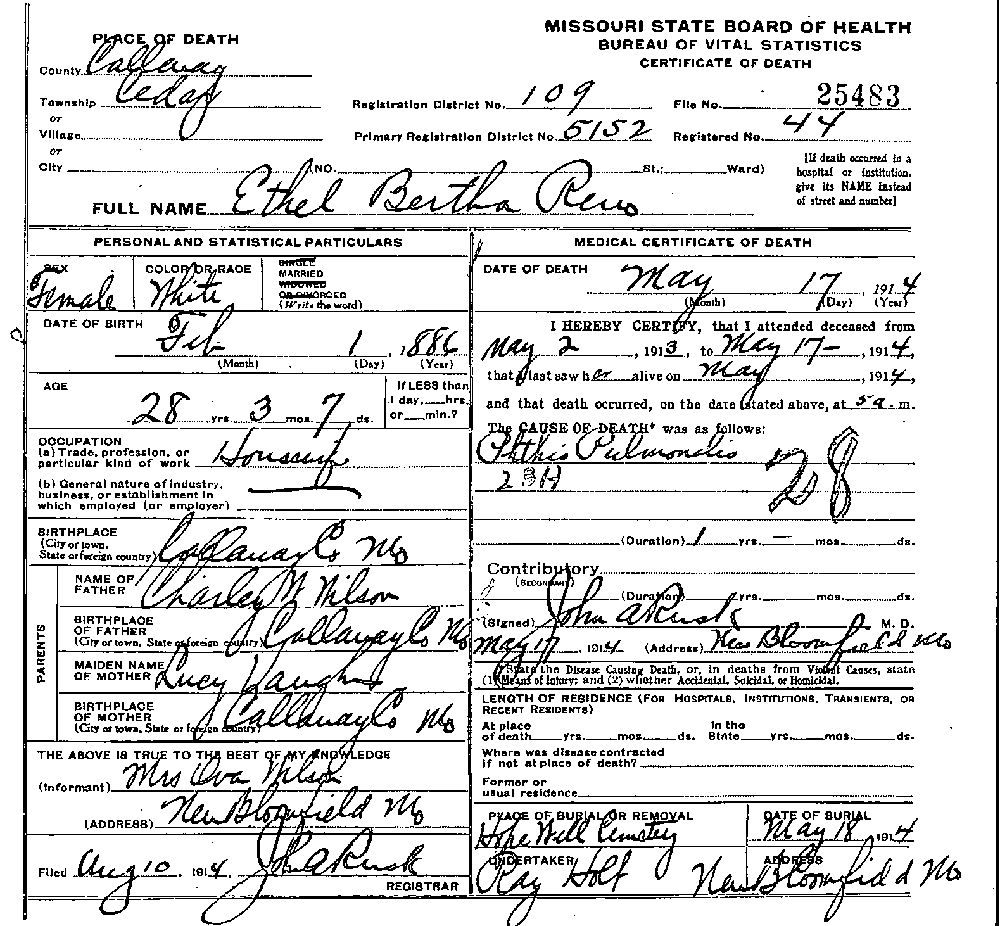 MISSOURI STATE BOARD OF HEALTH
BUREAU OF VITAL STATISTICS
CERTIFICATE OF DEATH
PLACE OF DEATH
County Callaway
Township Cedar
or
Village
or
City (NO. St.; Ward)
Registration District No. 109 File No. 25483
Primary Registration District No. 5152 Registered No. 44
[If death occurred in a hospital or institution, give its NAME instead of street and number]
FULL NAME Ethel Bertha Reno
PERSONAL AND STATISTICAL PARTICULARS
SEX Female
COLOR OR RACE White
SINGLE
MARRIED
WIDOWED
OR DIVORCED
(Write the word)
DATE OF BIRTH Feb 1, 1886
(Month) (Day) (Year)
AGE 28 yrs. 3 mos. 7 ds.
If LESS than 1 day, hrs. or min.?
OCCUPATION
(a) Trade, profession, or particular kind of work Housewife
(b) General nature of industry, business, or establishment in which employed (or employer)
BIRTHPLACE
(City or town, State or foreign country) Callaway Co Mo
PARENTS
NAME OF FATHER Charley M Nilson
BIRTHPLACE OF FATHER
(City or town, State or foreign country) Callaway Co Mo
MAIDEN NAME OF MOTHER Lucy Vaughn
BIRTHPLACE OF MOTHER
(City or town, State or foreign country) Callaway Co Mo
THE ABOVE IS TRUE TO THE BEST OF MY KNOWLEDGE
(Informant) Mrs Iva Nilson
(ADDRESS) New Bloomfield Mo
Filed Aug 10 1914 John A Rusk
REGISTRAR
MEDICAL CERTIFICATE OF DEATH
DATE OF DEATH May 17, 1914
(Month) (Day) (Year)
I HEREBY CERTIFY, that I attended deceased from
May 2, 1913, to May 17-, 1914,
that I last saw her alive on May, 1914,
and that death occurred, on the date stated above, at 5 a.m.
The CAUSE OF DEATH* was as follows:
Pthis Pulmonalis
23H 28
(Duration) 1 yrs. — mos. ds.
Contributory
(SECONDARY)
(Duration) yrs. mos. ds.
(Signed) John A Rusk M. D.
May 17, 1914 (Address) New Bloomfield Mo
*State the Disease Causing Death, or, in deaths from Violent Causes, state
(1) Means of Injury; and (2) whether Accidental, Suicidal, or Homicidal.
LENGTH OF RESIDENCE (FOR HOSPITALS, INSTITUTIONS, TRANSIENTS, OR RECENT RESIDENTS)
At place of death yrs. mos. ds. In the State yrs. mos. ds.
Where was disease contracted if not at place of death?
Former or usual residence
PLACE OF BURIAL OR REMOVAL Hope Well Cemetery
DATE OF BURIAL May 18, 1914
UNDERTAKER Ray Holt
ADDRESS New Bloomfield Mo